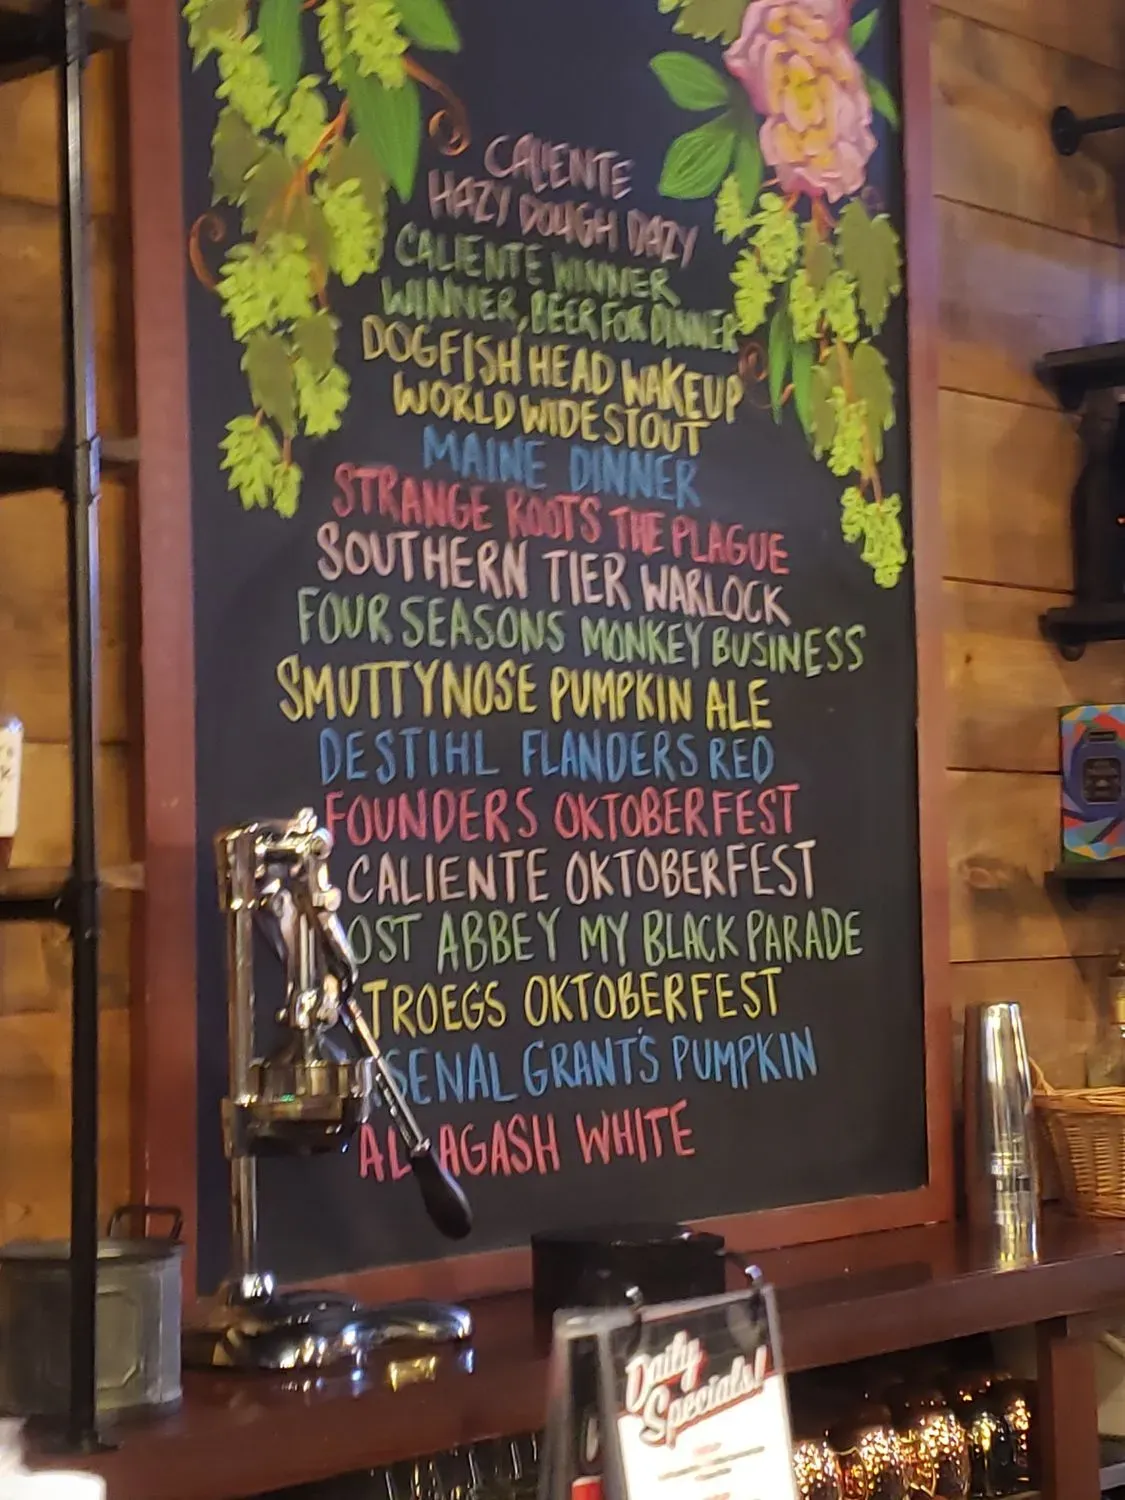 CALIENTE
HAZY DOUGH DAZY
CALIENTE WINNER
WINNER, BEER FOR DINNER
DOGFISH HEAD WAKEUP
WORLD WIDE STOUT
MAINE DINNER
STRANGE ROOTS THE PLAGUE
SOUTHERN TIER WARLOCK
FOUR SEASONS MONKEY BUSINESS
SMUTTYNOSE PUMPKIN ALE
DESTIHL FLANDERS RED
FOUNDERS OKTOBERFEST
CALIENTE OKTOBERFEST
OST ABBEY MY BLACK PARADE
TROEGS OKTOBERFEST
SENAL GRANT'S PUMPKIN
AL AGASH WHITE
Daily
Specials!